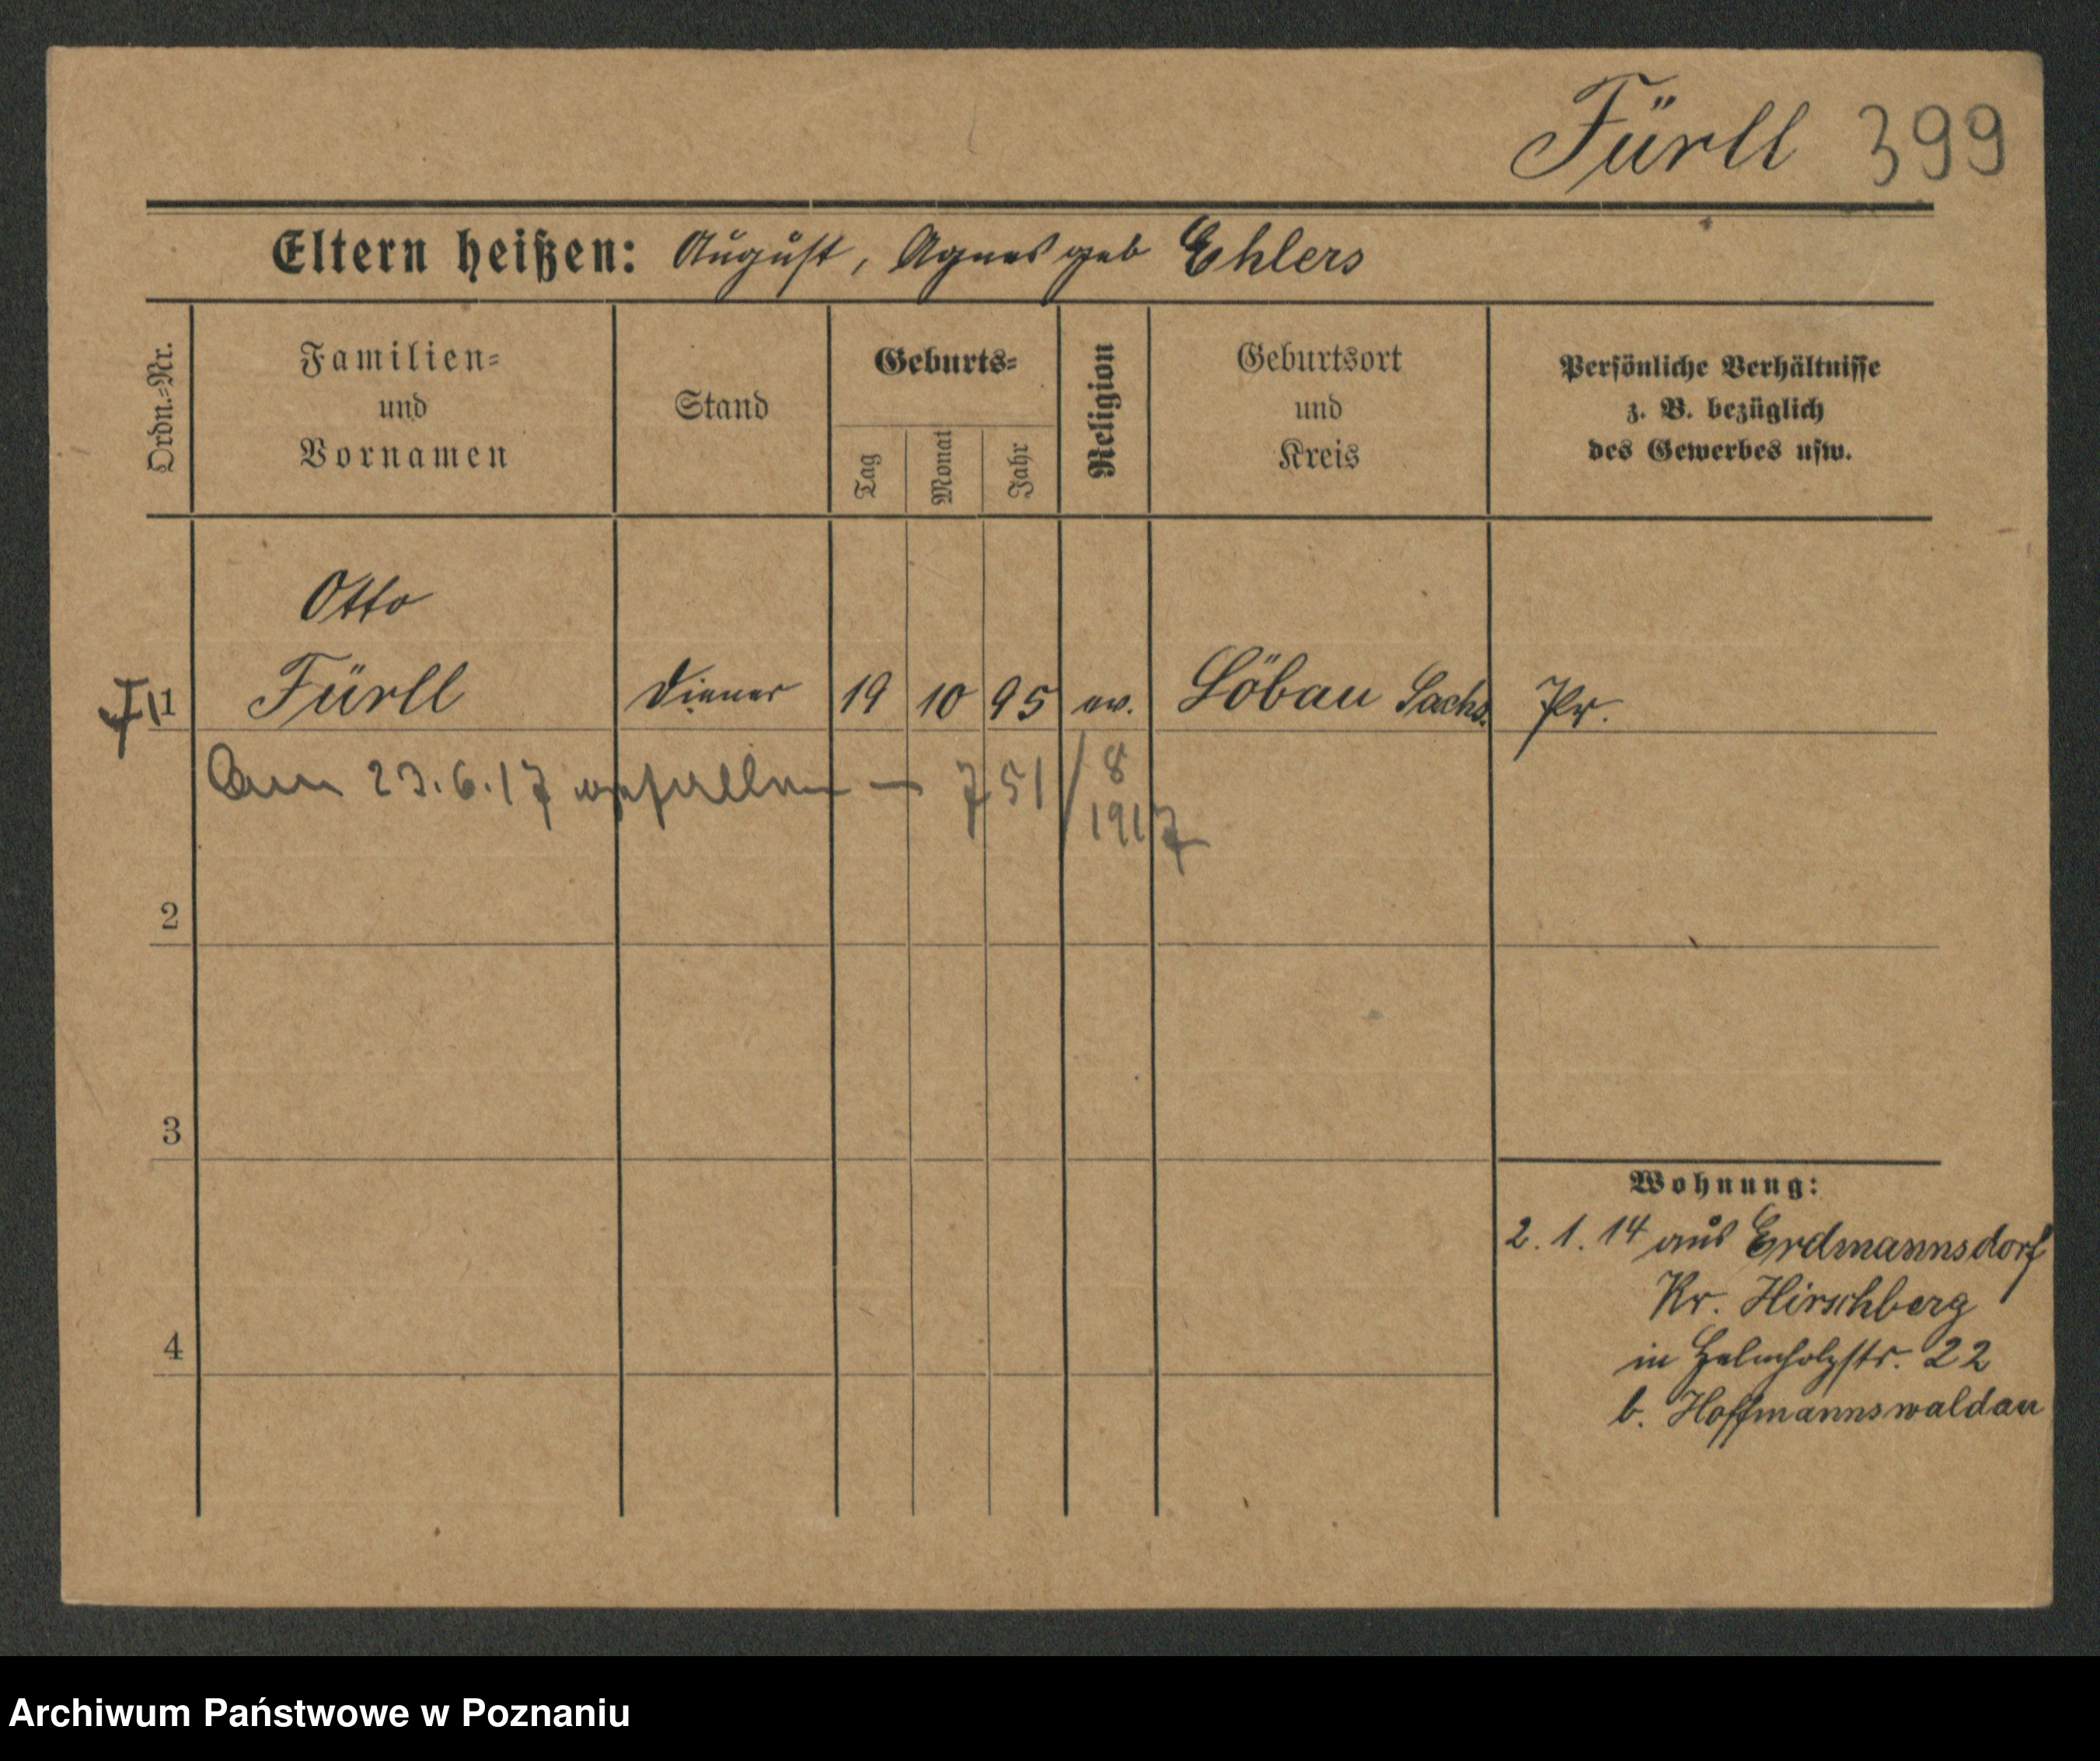 Fürll 399
Eltern heißen: August, Agnes geb Ehlers
Ordn.=Nr.
Familien=
und
Vornamen
Stand
Geburts=
Tag
Monat
Jahr
Religion
Geburtsort
und
Kreis
Persönliche Verhältnisse
z. B. bezüglich
des Gewerbes usw.
Otto
1 Fürll Diener 19 10 95 ev. Löbau Sachs. Pr.
Am 23.6.17 gefallen — 751/8
1917
2
3
4
Wohnung:
2. 1. 14 aus Erdmannsdorf
Kr. Hirschberg
in Helmholzstr. 22
b. Hoffmannswaldau
Archiwum Państwowe w Poznaniu